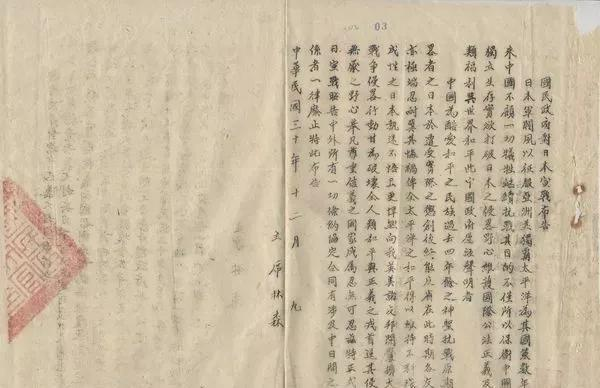 03
國民政府對日本宣戰布告
日本軍閥夙以征服亞洲並獨霸太平洋為其國策數年
來中國不顧一切犧牲繼續抗戰其目的不僅所以保衛中國
獨立生存實欲打破日本之侵略野心維護國際公法正義及
類福利與世界和平此中國政府屢經聲明者
中國為酷愛和平之民族過去四年餘之神聖抗戰原期
略者之日本於遭受實際之懲創後終能反省在此時期各友
亦極端忍耐冀其悔禍俾全太平洋之和平得以維持不料殘
成性之日本執迷不悟且更悍然向我英美諸友邦開釁擴大
戰爭侵略行動甘為破壞全人類和平與正義之戎首逞其侵
無厭之野心舉凡尊重信義之國家咸屬忍無可忍茲特正式
日宣戰昭告中外所有一切條約協定合同有涉及中日間之
係者一律廢止特此布告
中華民國三十年十二月九
主席林森